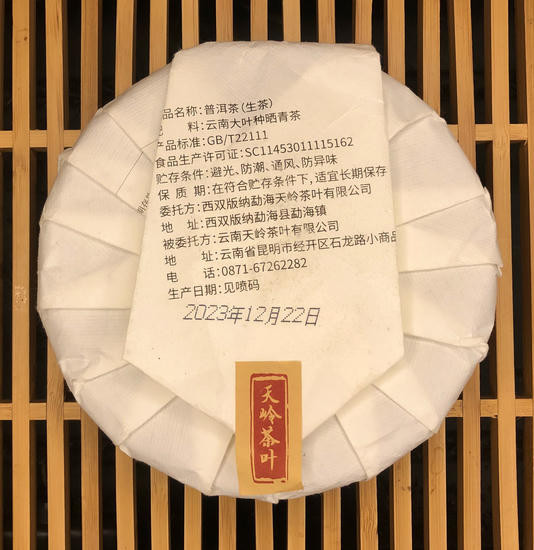 品名称：普洱茶（生茶）
料：云南大叶种晒青茶
产品标准：GB/T22111
食品生产许可证：SC11453011115162
贮存条件：避光、防潮、通风、防异味
保 质 期：在符合贮存条件下，适宜长期保存
委托方：西双版纳勐海天岭茶叶有限公司
地 址：西双版纳勐海县勐海镇
被委托方：云南天岭茶叶有限公司
地 址：云南省昆明市经开区石龙路小商品
电 话：0871-67262282
生产日期：见喷码
2023年12月22日
天岭茶叶